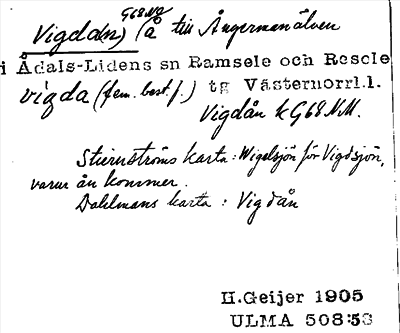 G68NV
Vigda(n) å till Ångermanälven
i Ådals-Lidens sn Ramsele och Resele
vigda (fem. best. f.) tg Västernorrl.l.
Vigdån k G68 N.M.
Stiernströms karta: Wigelsjön för Vigdsjön,
varur ån kommer.
Dahlmans karta : Vigdån
H.Geijer 1905
ULMA 508:53